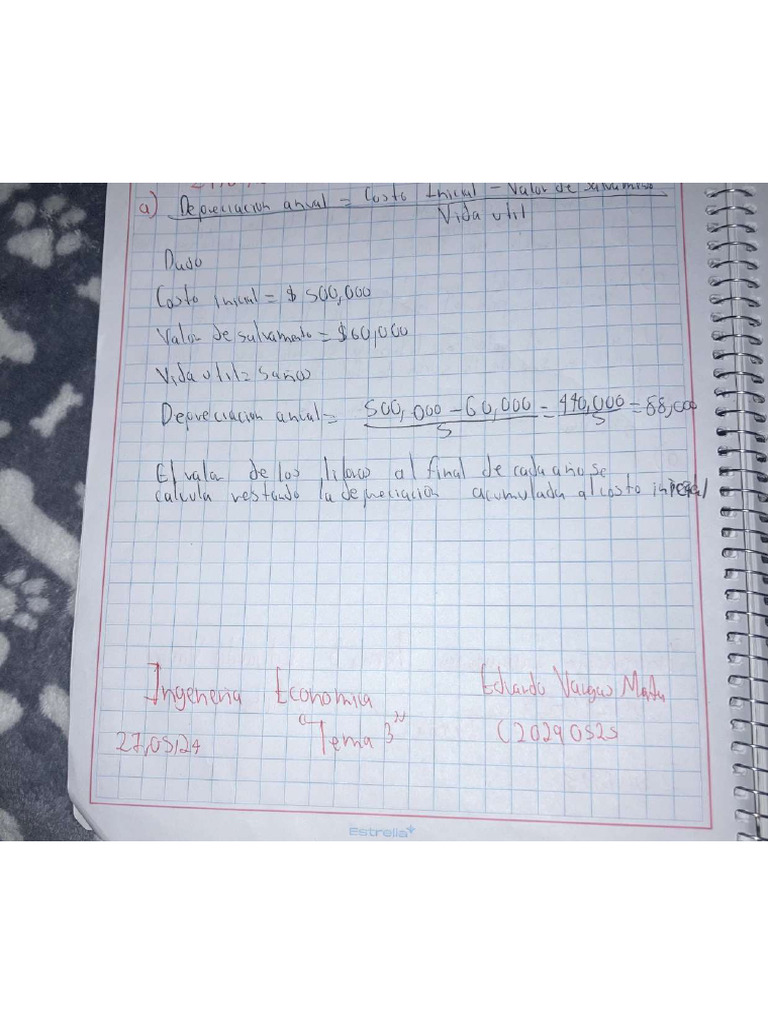 a) Depreciacion anual = Costo Inicial - Valor de salvamento
Vida util
Dudo
Costo inicial = $ 500,000
Valor de salvamento = $60,000
Vida util = 5 años
Depreciacion anual = 500,000 - 60,000 = 440,000 = 88,000
5 5
El valor de los libros al final de cada año se
calcula restando la depreciación acumulada al costo inicial
Ingeneria Economica Eduardo Vargas
27,05,24 "Tema 3" C20290525
Estrella